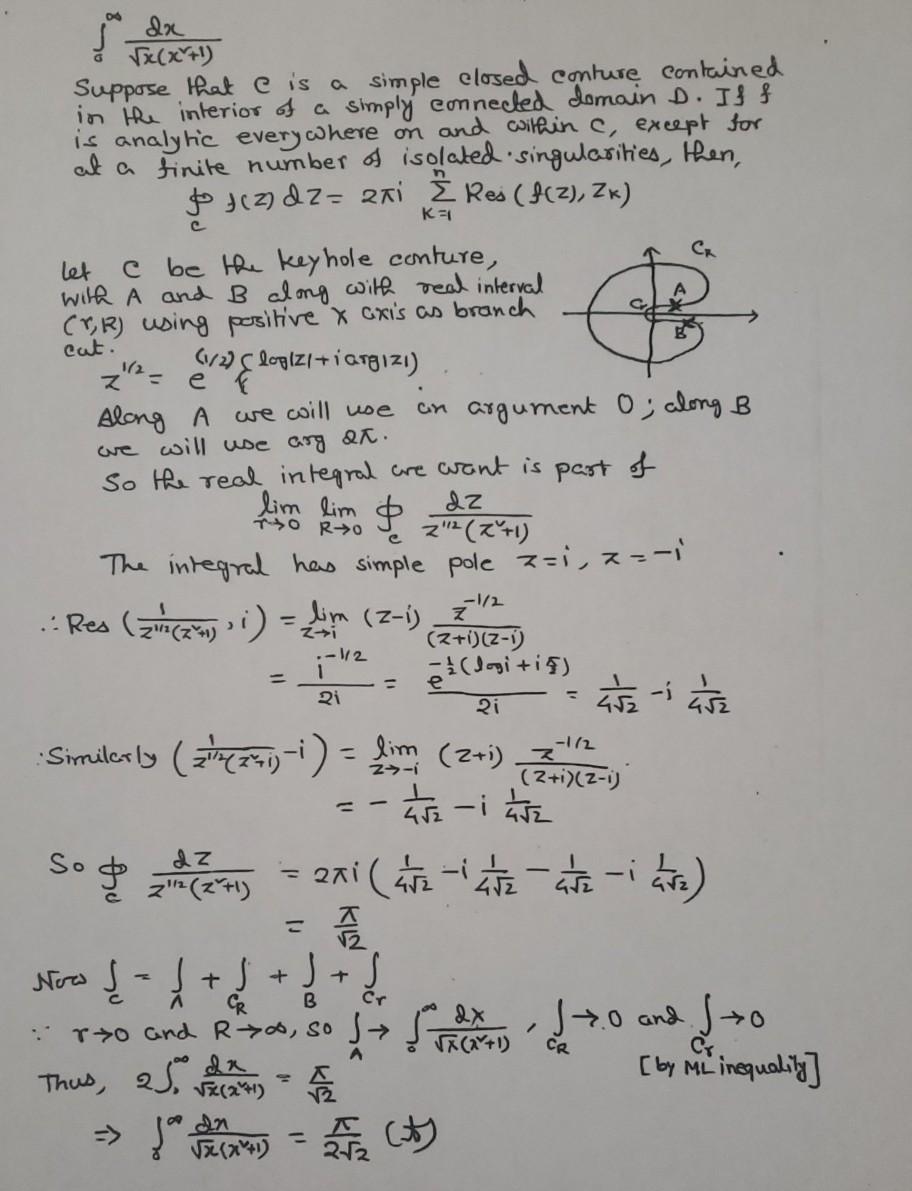 ∫₀^∞ dx / √x(x²+1)
Suppose that C is a simple closed conture contained
in the interior of a simply connected domain D. If f
is analytic everywhere on and within C, except for
at a finite number of isolated singularities, then,
∮_C f(z) dz = 2πi Σ_{K=1}^{n} Res (f(z), z_K)
Let C be the keyhole conture,
with A and B along with real interval
(r,R) using positive x axis as branch
cut.
C_R
A
C
B
z^{1/2} = e^{(1/2){log|z| + i arg|z|)}
Along A we will use an argument 0; along B
we will use arg 2π.
So the real integral we want is part of
lim_{r→0} lim_{R→0} ∮_C dz / z^{1/2}(z²+1)
The integral has simple pole z=i, z=-i
∴ Res (1/z^{1/2}(z²+1), i) = lim_{z→i} (z-i) z^{-1/2} / (z+i)(z-i)
= i^{-1/2} / 2i = e^{-1/2(log i + i π/2)} / 2i = 1/4√2 - i 1/4√2
Similarly (1/z^{1/2}(z²+1) -i) = lim_{z→-i} (z+i) z^{-1/2} / (z+i)(z-i)
= - 1/4√2 - i 1/4√2
So ∮_C dz / z^{1/2}(z²+1) = 2πi (1/4√2 - i 1/4√2 - 1/4√2 - i 1/4√2)
= π/√2
Now ∫_C = ∫_A + ∫_{C_R} + ∫_B + ∫_{C_r}
∵ r→0 and R→∞, so ∫_A → ∫₀^∞ dx / √x(x²+1), ∫_{C_R} → 0 and ∫_{C_r} → 0
[by ML inequality]
Thus, 2∫₀^∞ dx / √x(x²+1) = π/√2
⇒ ∫₀^∞ dx / √x(x²+1) = π/2√2